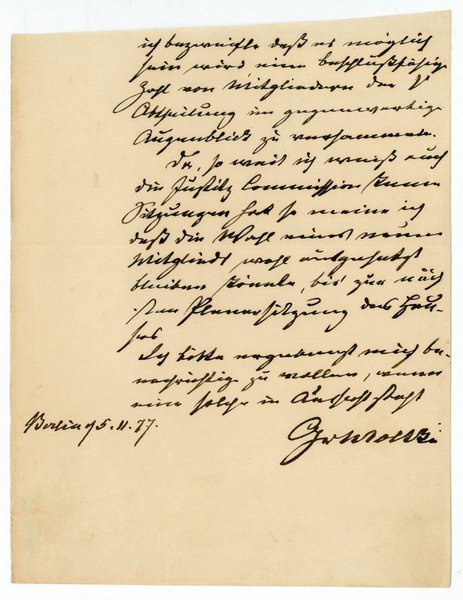 ich bezweifle daß es möglich
sein wird eine beschlußfähige
Zahl von Mitgliedern der
Abtheilung im gegenwertige
Augenblick zu versammeln.
Da, so weit ich weiß auch
die Justitz Commission keine
Sitzungen hat so meine ich
daß die Wahl eines neuen
Mitglieds wohl ausgesetzt
bleiben könnte, bis zur näch
sten Plenarsitzung des Hau-
ses
Ich bitte ergebenst mich be-
nachrichtige zu wollen, wenn
eine solche in Aussicht steht
Berlin 5.11.77.
Gr Moltke